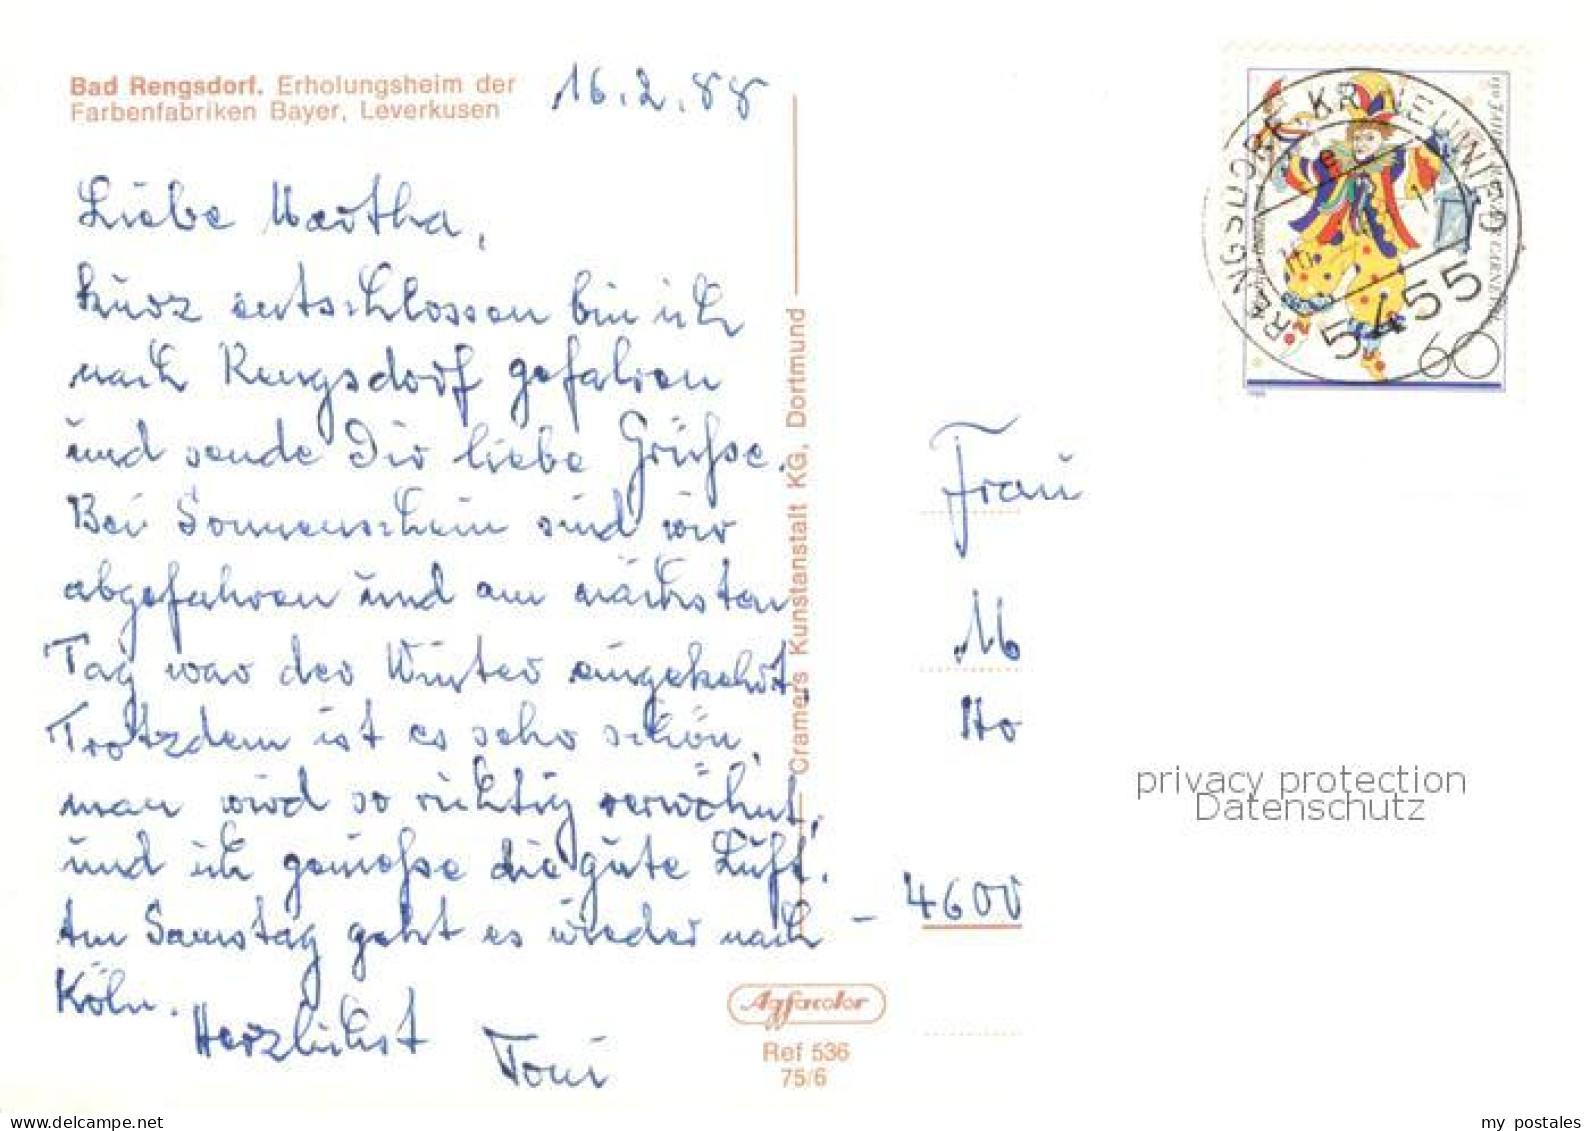 Bad Rengsdorf. Erholungsheim der
Farbenfabriken Bayer, Leverkusen
16.2.88
Liebe Martha,
kurz entschlossen bin ich
nach Rengsdorf gefahren
und sende Dir liebe Grüße.
Bei Sonnenschein sind wir
abgefahren und am nächsten
Tag war der Winter eingekehrt.
Trotzdem ist es sehr schön,
man wird so richtig verwöhnt
und ich genieße die gute Luft.
Am Samstag geht es wieder nach –
Köln.
Herzlichst
Toni
Cramers Kunstanstalt KG, Dortmund
Agfacolor
Ref 536
75/6
RENGSDORF, KR NEUWIED
5455
60
Frau
4600
privacy protection
Datenschutz
my postales